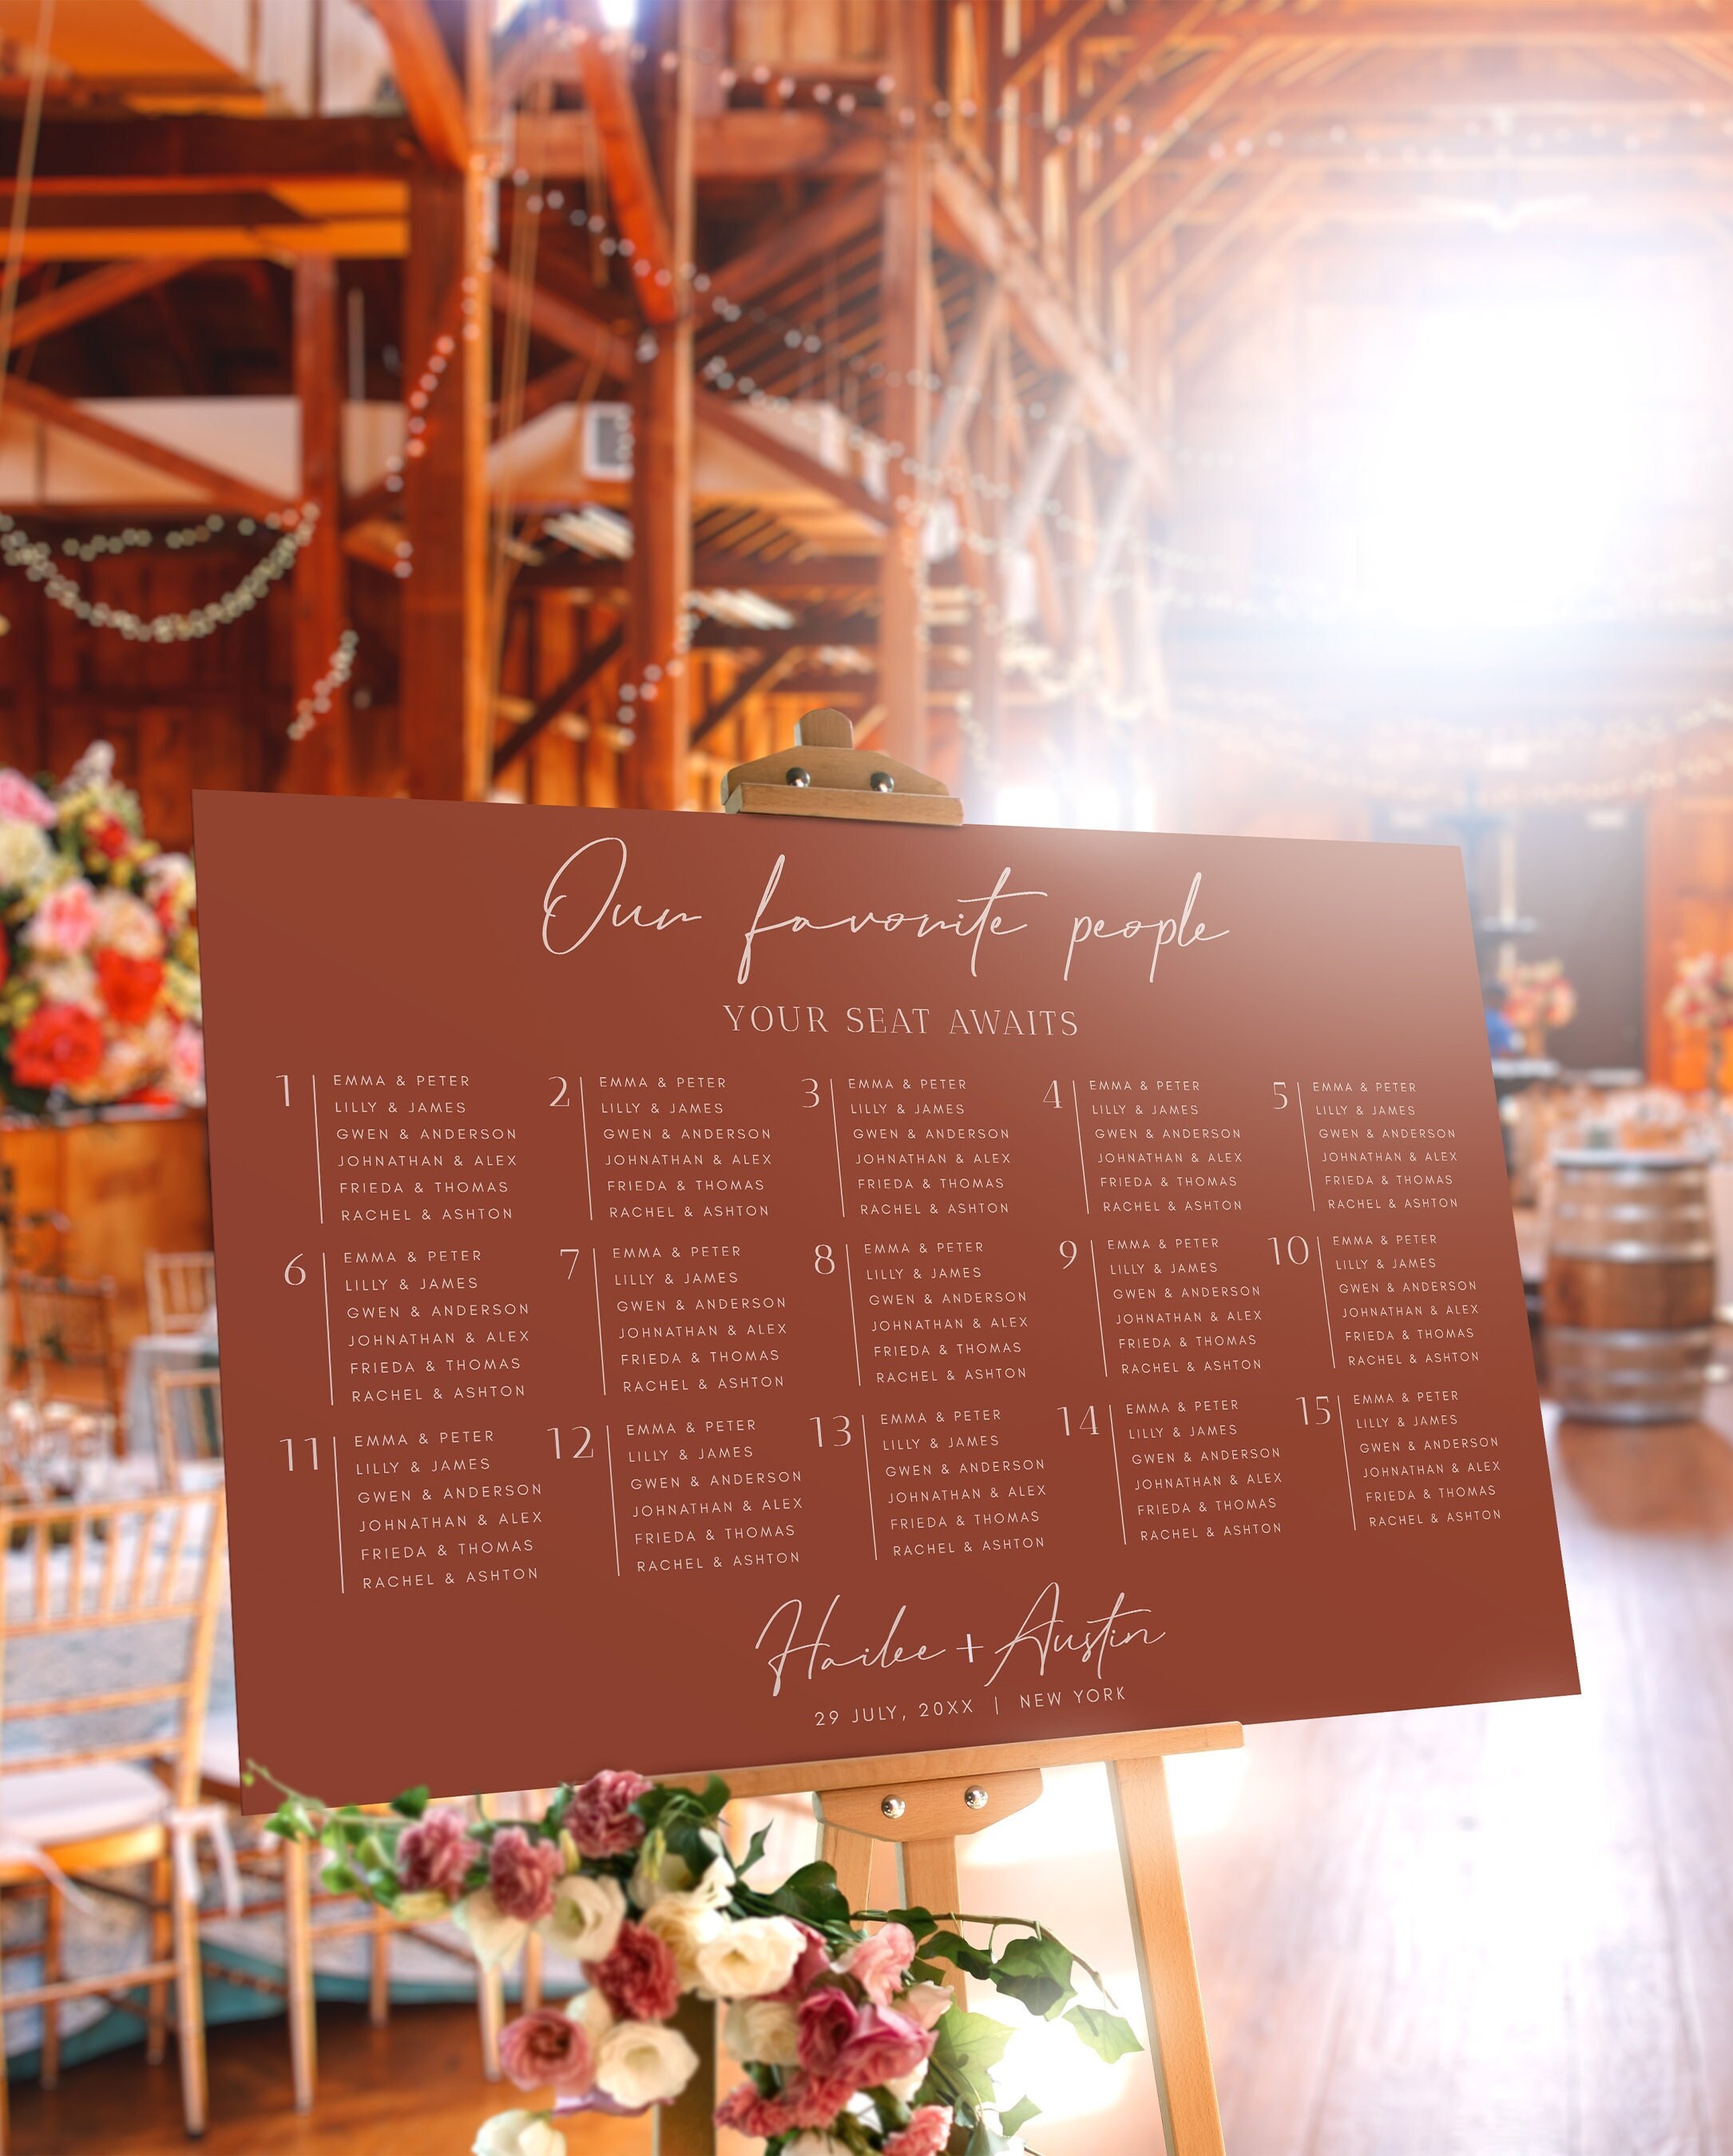 Our favorite people
YOUR SEAT AWAITS
1
EMMA & PETER
LILLY & JAMES
GWEN & ANDERSON
JOHNATHAN & ALEX
FRIEDA & THOMAS
RACHEL & ASHTON
2
EMMA & PETER
LILLY & JAMES
GWEN & ANDERSON
JOHNATHAN & ALEX
FRIEDA & THOMAS
RACHEL & ASHTON
3
EMMA & PETER
LILLY & JAMES
GWEN & ANDERSON
JOHNATHAN & ALEX
FRIEDA & THOMAS
RACHEL & ASHTON
4
EMMA & PETER
LILLY & JAMES
GWEN & ANDERSON
JOHNATHAN & ALEX
FRIEDA & THOMAS
RACHEL & ASHTON
5
EMMA & PETER
LILLY & JAMES
GWEN & ANDERSON
JOHNATHAN & ALEX
FRIEDA & THOMAS
RACHEL & ASHTON
6
EMMA & PETER
LILLY & JAMES
GWEN & ANDERSON
JOHNATHAN & ALEX
FRIEDA & THOMAS
RACHEL & ASHTON
7
EMMA & PETER
LILLY & JAMES
GWEN & ANDERSON
JOHNATHAN & ALEX
FRIEDA & THOMAS
RACHEL & ASHTON
8
EMMA & PETER
LILLY & JAMES
GWEN & ANDERSON
JOHNATHAN & ALEX
FRIEDA & THOMAS
RACHEL & ASHTON
9
EMMA & PETER
LILLY & JAMES
GWEN & ANDERSON
JOHNATHAN & ALEX
FRIEDA & THOMAS
RACHEL & ASHTON
10
EMMA & PETER
LILLY & JAMES
GWEN & ANDERSON
JOHNATHAN & ALEX
FRIEDA & THOMAS
RACHEL & ASHTON
11
EMMA & PETER
LILLY & JAMES
GWEN & ANDERSON
JOHNATHAN & ALEX
FRIEDA & THOMAS
RACHEL & ASHTON
12
EMMA & PETER
LILLY & JAMES
GWEN & ANDERSON
JOHNATHAN & ALEX
FRIEDA & THOMAS
RACHEL & ASHTON
13
EMMA & PETER
LILLY & JAMES
GWEN & ANDERSON
JOHNATHAN & ALEX
FRIEDA & THOMAS
RACHEL & ASHTON
14
EMMA & PETER
LILLY & JAMES
GWEN & ANDERSON
JOHNATHAN & ALEX
FRIEDA & THOMAS
RACHEL & ASHTON
15
EMMA & PETER
LILLY & JAMES
GWEN & ANDERSON
JOHNATHAN & ALEX
FRIEDA & THOMAS
RACHEL & ASHTON
Hailee + Austin
29 JULY, 20XX | NEW YORK